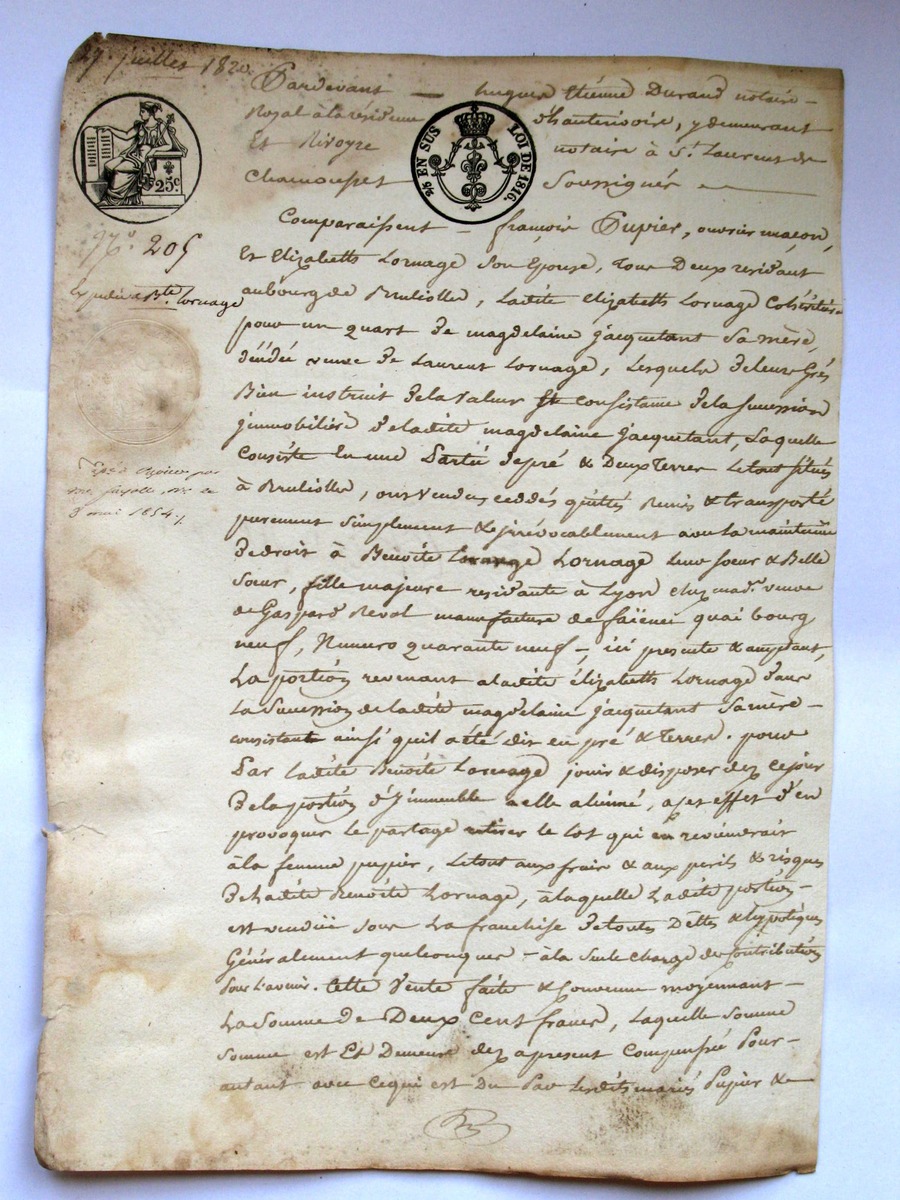 27 juillet 1820
Pardevant — hugues Etienne Durand notaire –
Royal à la résidence d'hauterivoire, y demeurant
Et Rivoyre notaire à St. Laurent de
Chamousset Soussignés —
25 EN SUS LOI DE 1816.
25c
No. 205
Expédiée Bte. Lornage
Comparaissent – françois Pupier, ouvrier maçon,
Et Elizabeth Lornage son Epouse, tous Deux residant
au bourg de Brullioles, Ladite Elizabeth Lornage Cohéritière
pour un quart de magdelaine jacquetant sa mère,
déédée veuve de Laurent Lornage, Lesquels de leurs Grés
Bien instruit de la valeur Et Consistance de la succession
jmmobilière de ladite magdelaine jacquetant, Laquelle
Consiste En une Partie de pré & Deux Terres Le tout situés
à Brullioles, ont vendus ceddés quittés Remis & transporté
purement simplement & jrrévocablement avec la maintenue
de droit à Benoite Lornage Lornage leur soeur & Belle
soeur, fille majeure residante à Lyon chez made. veuve
de Gaspard Revol manufacture de faïence quai bourg
neuf, Numero quarante neuf –, ici presente & acceptant,
La portion revenant a ladite élizabeth Lornage dans
La Succession de ladite magdelaine jacquetant sa mère –
consistante ainsi quil a été dit en pré & Terres. pour
Par ladite Benoite Lornage jouir & disposer dez ce jour
De la portion d'jmmeuble a elle aliénné, a ses effet d'en
provoquer le partage retirer le lot qui en reviendrair
à la femme pupier, Le tout aux frais & aux perils & risques
De ladite Benoite Lornage, à laquelle Ladite portion –
est venduë sous La franchise de toutes Dettes & hypotéques
Généralement quelconques – à la seule charge des Contributions
Pour l'avenir. Cette Vente faite & Convenue moyennant –
La Somme de Deux Cent francs, Laquelle Somme
Somme est Et Demeure dez apresent Compensée Pour –
autant avec Ce qui est Du Par Lesdits mariés Pupier &
mai 1854